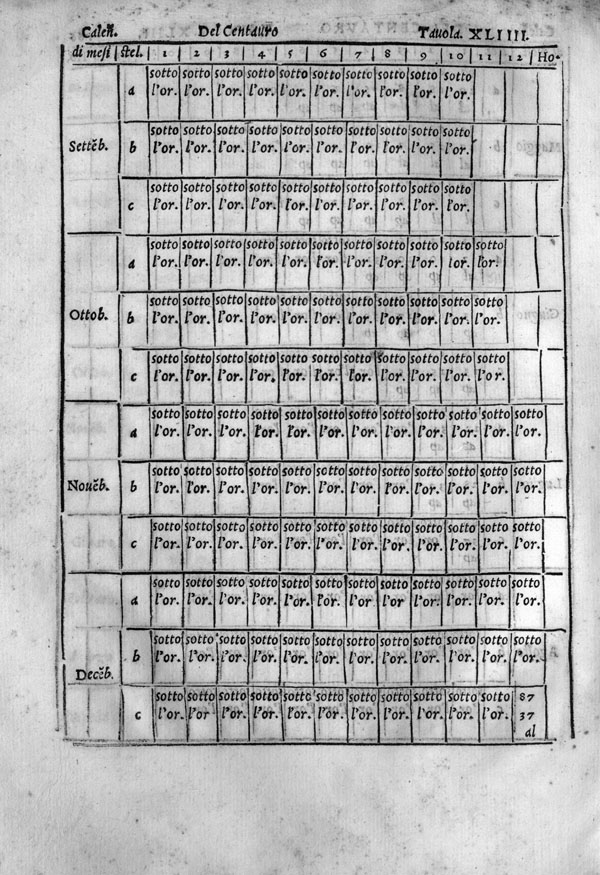 Caleñ. Del Centauro Tavola. XLIIII.
di mesi stel. 1 2 3 4 5 6 7 8 9 10 11 12 Ho.
sotto sotto sotto sotto sotto sotto sotto sotto sotto sotto
a l'or. l'or. l'or. l'or. l'or. l'or. l'or. l'or. l'or. l'or.
sotto sotto sotto sotto sotto sotto sotto sotto sotto sotto
Settẽb. b l'or. l'or. l'or. l'or. l'or. l'or. l'or. l'or. l'or. l'or.
sotto sotto sotto sotto sotto sotto sotto sotto sotto sotto
c l'or. l'or. l'or. l'or. l'or. l'or. l'or. l'or. l'or. l'or.
sotto sotto sotto sotto sotto sotto sotto sotto sotto sotto sotto
a l'or. l'or. l'or. l'or. l'or. l'or. l'or. l'or. l'or. lor. l'or.
sotto sotto sotto sotto sotto sotto sotto sotto sotto sotto sotto
Ottob. b l'or. l'or. l'or. l'or. l'or. l'or. l'or. l'or. l'or. l'or. l'or.
sotto sotto sotto sotto sotto sotto sotto sotto sotto sotto sotto
c l'or. l'or. l'or. l'or. l'or. l'or. l'or. l'or. l'or. l'or. l'or.
sotto sotto sotto sotto sotto sotto sotto sotto sotto sotto sotto sotto
a l'or. l'or. l'or. l'or. l'or. l'or. l'or. l'or. l'or. l'or. l'or. l'or.
sotto sotto sotto sotto sotto sotto sotto sotto sotto sotto sotto sotto
Nouẽb. b l'or. l'or. l'or. l'or. l'or. l'or. l'or. l'or. l'or. l'or. l'or. l'or.
sotto sotto sotto sotto sotto sotto sotto sotto sotto sotto sotto sotto
c l'or. l'or. l'or. l'or. l'or. l'or. l'or. l'or. l'or. l'or. l'or. l'or.
sotto sotto sotto sotto sotto sotto sotto sotto sotto sotto sotto sotto
a l'or. l'or. l'or. l'or. l'or. l'or. l'or l'or l'or. l'or. l'or. l'or.
sotto sotto sotto sotto sotto sotto sotto sotto sotto sotto sotto sotto
b l'or. l'or. l'or. l'or. l'or. l'or. l'or. l'or. l'or. l'or. l'or. l'or.
Decẽb.
sotto sotto sotto sotto sotto sotto sotto sotto sotto sotto sotto 87
c l'or. l'or l'or. l'or. l'or. l'or. l'or. l'or. l'or. l'or. l'or. 37
al